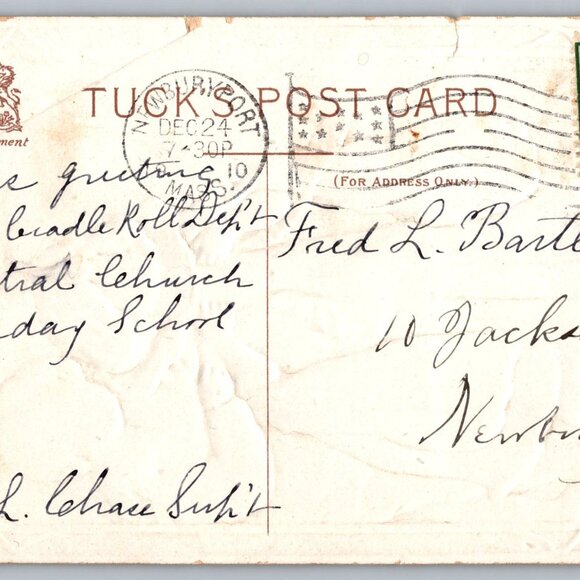 TUCK'S POST CARD
NEWBURYPORT
DEC 24
7-30P
10
MASS.
(FOR ADDRESS ONLY.)
greeting
Cradle Roll Dep't
tral Church
day School
L. Chase Sup't
Fred L. Bartl
10 Jacks
Newbu